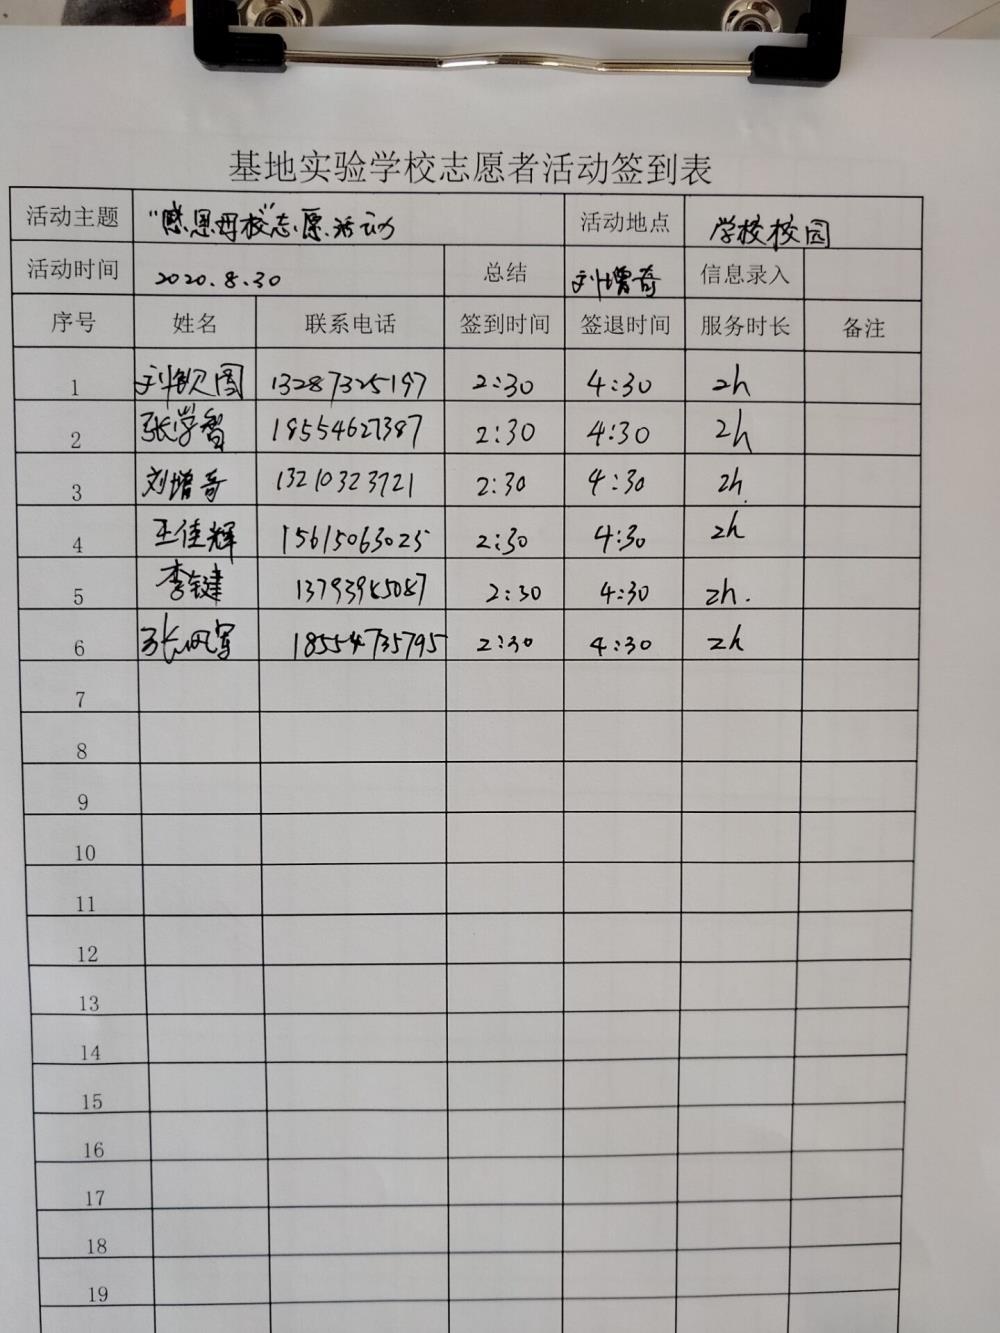 基地实验学校志愿者活动签到表
活动主题 "感恩母校"志愿活动 活动地点 学校校园
活动时间 2020.8.30 总结 刘增奇 信息录入
序号 姓名 联系电话 签到时间 签退时间 服务时长 备注
1 刘钦国 13287325197 2:30 4:30 2h
2 张学智 18554627387 2:30 4:30 2h
3 刘增奇 13210323721 2:30 4:30 2h.
4 王佳辉 15615063025 2:30 4:30 2h
5 李键 13793985087 2:30 4:30 2h.
6 张 18554735795 2:30 4:30 2h
7
8
9
10
11
12
13
14
15
16
17
18
19